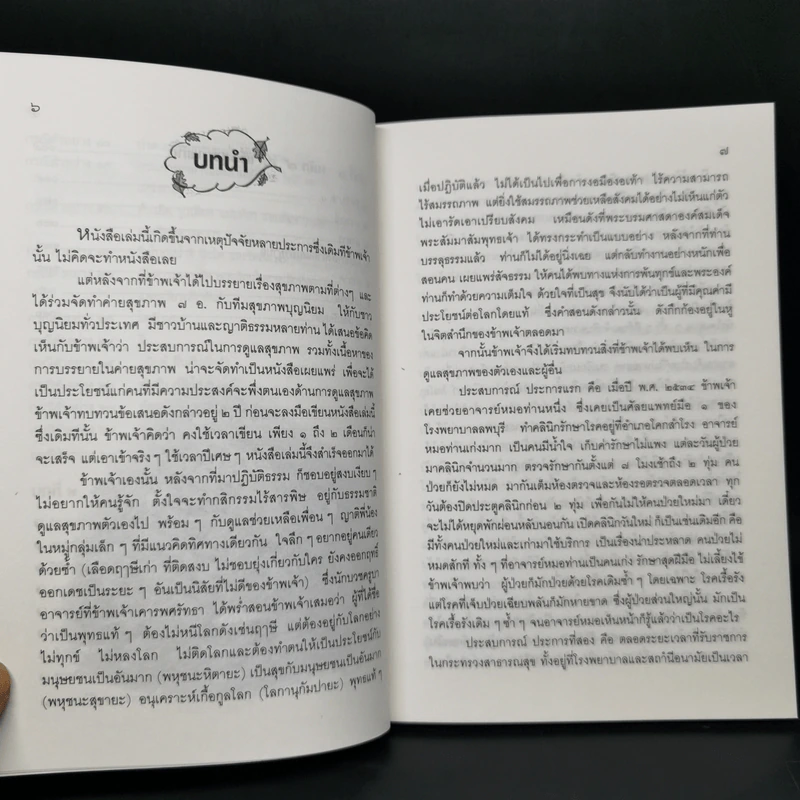 ๖
บทนำ
หนังสือเล่มนี้เกิดขึ้นจากเหตุปัจจัยหลายประการซึ่งเดิมทีข้าพเจ้า
นั้น ไม่คิดจะทำหนังสือเลย
แต่หลังจากที่ข้าพเจ้าได้ไปบรรยายเรื่องสุขภาพตามที่ต่างๆ และ
ได้ร่วมจัดทำค่ายสุขภาพ ๗ อ. กับทีมสุขภาพบุญนิยม ให้กับชาว
บุญนิยมทั่วประเทศ มีชาวบ้านและญาติธรรมหลายท่าน ได้เสนอข้อคิด
เห็นกับข้าพเจ้าว่า ประสบการณ์ในการดูแลสุขภาพ รวมทั้งเนื้อหาของ
การบรรยายในค่ายสุขภาพ น่าจะจัดทำเป็นหนังสือเผยแพร่ เพื่อจะได้
เป็นประโยชน์แก่คนที่มีความประสงค์จะพึ่งตนเองด้านการดูแลสุขภาพ
ข้าพเจ้าทบทวนข้อเสนอดังกล่าวอยู่ ๒ ปี ก่อนจะลงมือเขียนหนังสือเล่มนี้
ซึ่งเดิมทีนั้น ข้าพเจ้าคิดว่า คงใช้เวลาเขียน เพียง ๑ ถึง ๒ เดือนก็น่า
จะเสร็จ แต่เอาเข้าจริงๆ ใช้เวลาปีเศษๆ หนังสือเล่มนี้จึงสำเร็จออกมาได้
ข้าพเจ้าเองนั้น หลังจากที่มาปฏิบัติธรรม ก็ชอบอยู่สงบเงียบๆ
ไม่อยากให้คนรู้จัก ตั้งใจจะทำกสิกรรมไร้สารพิษ อยู่กับธรรมชาติ
ดูแลสุขภาพตัวเองไป พร้อมๆ กับดูแลช่วยเหลือเพื่อนๆ ญาติพี่น้อง
ในหมู่กลุ่มเล็กๆ ที่มีแนวคิดทิศทางเดียวกัน ใจลึกๆ อยากอยู่คนเดียว
ด้วยซ้ำ (เลือดฤๅษีเก่า ที่ติดสงบ ไม่ชอบยุ่งเกี่ยวกับใคร ยังคงออกฤทธิ์
ออกเดชเป็นระยะๆ อันเป็นนิสัยที่ไม่ดีของข้าพเจ้า) ซึ่งนักบวชครูบา
อาจารย์ที่ข้าพเจ้าเคารพศรัทธา ได้พร่ำสอนข้าพเจ้าเสมอว่า ผู้ที่ได้ชื่อ
ว่าเป็นพุทธแท้ๆ ต้องไม่หนีโลกดังเช่นฤๅษี แต่ต้องอยู่กับโลกอย่าง
ไม่ทุกข์ ไม่หลงโลก ไม่ติดโลกและต้องทำตนให้เป็นประโยชน์กับ
มนุษยชนเป็นอันมาก (พหุชนะหิตายะ) เป็นสุขกับมนุษยชนเป็นอันมาก
(พหุชนะสุขายะ) อนุเคราะห์เกื้อกูลโลก (โลกานุกัมปายะ) พุทธแท้ๆ
๗
เมื่อปฏิบัติแล้ว ไม่ได้เป็นไปเพื่อการงอมืองอเท้า ไร้ความสามารถ
ไร้สมรรถภาพ แต่ยิ่งใช้สมรรถภาพช่วยเหลือสังคมได้อย่างไม่เห็นแก่ตัว
ไม่เอารัดเอาเปรียบสังคม เหมือนดังที่พระบรมศาสดาองค์สมเด็จ
พระสัมมาสัมพุทธเจ้า ได้ทรงกระทำเป็นแบบอย่าง หลังจากที่ท่าน
บรรลุธรรมแล้ว ท่านก็ไม่ได้อยู่นิ่งเฉย แต่กลับทำงานอย่างหนักเพื่อ
สอนคน เผยแพร่สัจธรรม ให้คนได้พบทางแห่งการพ้นทุกข์และพระองค์
ท่านก็ทำด้วยความเต็มใจ ด้วยใจที่เป็นสุข จึงนับได้ว่าเป็นผู้ที่มีคุณค่ามี
ประโยชน์ต่อโลกโดยแท้ ซึ่งคำสอนดังกล่าวนั้น ดังกึกก้องอยู่ในหู
ในจิตสำนึกของข้าพเจ้าตลอดมา
จากนั้นข้าพเจ้าจึงได้เริ่มทบทวนสิ่งที่ข้าพเจ้าได้พบเห็น ในการ
ดูแลสุขภาพของตัวเองและผู้อื่น
ประสบการณ์ ประการแรก คือ เมื่อปี พ.ศ. ๒๕๓๔ ข้าพเจ้า
เคยช่วยอาจารย์หมอท่านหนึ่ง ซึ่งเคยเป็นศัลยแพทย์มือ ๑ ของ
โรงพยาบาลลพบุรี ทำคลินิกรักษาโรคอยู่ที่อำเภอโคกสำโรง อาจารย์
หมอท่านเก่งมาก เป็นคนมีน้ำใจ เก็บค่ารักษาไม่แพง แต่ละวันผู้ป่วย
มาคลินิกจำนวนมาก ตรวจรักษากันตั้งแต่ ๗ โมงเช้าถึง ๒ ทุ่ม คน
ป่วยก็ยังไม่หมด มากันเต็มห้องตรวจและห้องรอตรวจตลอดเวลา ทุก
วันต้องปิดประตูคลินิกก่อน ๒ ทุ่ม เพื่อกันไม่ให้คนป่วยใหม่มา เดี๋ยว
จะไม่ได้หยุดพักผ่อนหลับนอนกัน เปิดคลินิกวันใหม่ ก็เป็นเช่นเดิมอีก คือ
มีทั้งคนป่วยใหม่และเก่ามาใช้บริการ เป็นเรื่องน่าประหลาด คนป่วยไม่
หมดสักที ทั้งๆ ที่อาจารย์หมอท่านเป็นคนเก่ง รักษาสุดฝีมือ ไม่เลี้ยงไข้
ข้าพเจ้าพบว่า ผู้ป่วยก็มักป่วยด้วยโรคเดิมซ้ำๆ โดยเฉพาะ โรคเรื้อรัง
แต่โรคที่เจ็บป่วยเฉียบพลันก็มักหายขาด ซึ่งผู้ป่วยส่วนใหญ่นั้น มักเป็น
โรคเรื้อรังเดิมๆ ซ้ำๆ จนอาจารย์หมอเห็นหน้าก็รู้แล้วว่าเป็นโรคอะไร
ประสบการณ์ ประการที่สอง คือ ตลอดระยะเวลาที่รับราชการ
ในกระทรวงสาธารณสุข ทั้งอยู่ที่โรงพยาบาลและสถานีอนามัยเป็นเวลา